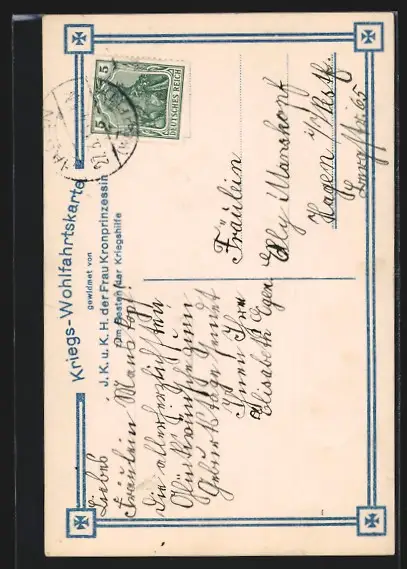 Kriegs-Wohlfahrtskarte
gewidmet von
J. K. u. K. H. der Frau Kronprinzessin
zum Besten der Kriegshilfe
5 5
DEUTSCHES REICH
HAGEN
Fräulein
Elly Manskopf
Hagen i/Westf.
65
Liebes
Fräulein Manskopf!
Die allerherzlichsten
Glückwünsche zum
Geburtstage sendet
Ihnen Ihre
Elisabeth